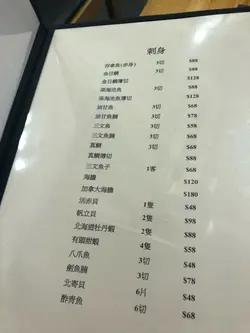 刺身
吞拿魚(赤身) 3切 $88
金目鯛 3切 $88
金目鯛薄切 $128
深海池魚 3切 $88
深海池魚薄切 $128
油甘魚 3切 $68
油甘魚腩 3切 $78
三文魚 3切 $58
三文魚腩 3切 $68
真鯛 3切 $68
真鯛薄切 $98
三文魚子 1客 $68
海膽 $120
加拿大海膽 $180
活赤貝 1隻 $48
帆立貝 2隻 $58
北海道牡丹蝦 2隻 $98
有頭甜蝦 4隻 $58
八爪魚 3切 $48
劍魚腩 3切 $78
北寄貝 6片 $48
醋青魚 6切 $68